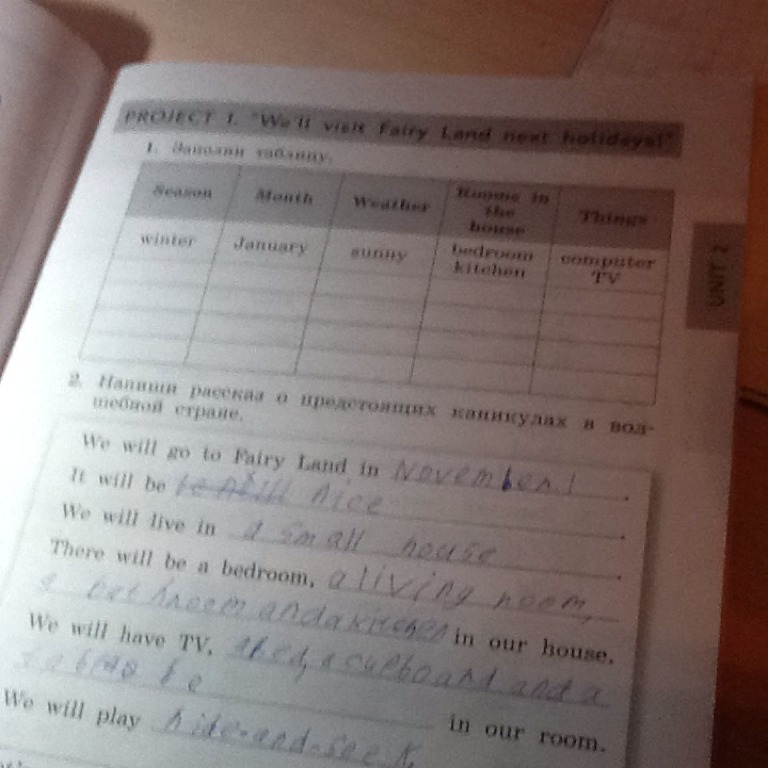 PROJECT 1. "We'll visit Fairy Land next holidays!"
1. Заполни таблицу.
Season Month Weather Rooms in the house Things
winter January sunny bedroom kitchen computer TV
UNIT 2
2. Напиши рассказ о предстоящих каникулах в вол-
шебной стране.
We will go to Fairy Land in November.
It will be nice
We will live in a small house.
There will be a bedroom, a living room,
a bathroom and a kitchen in our house.
We will have TV, a bed, a cupboard and a
in our room.
We will play hide-and-seek